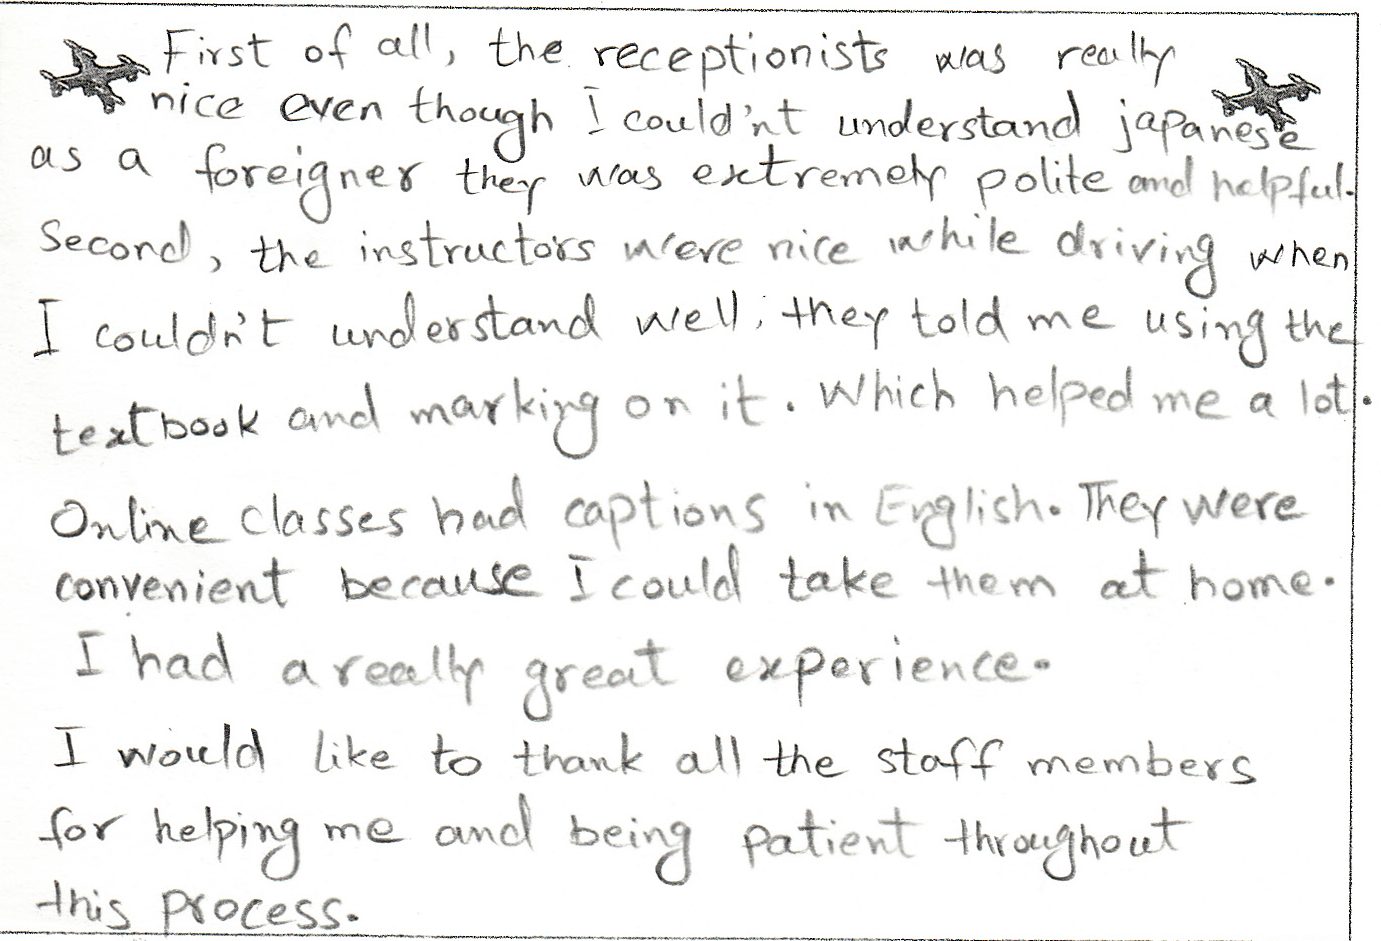 First of all, the receptionists was really
nice even though I could'nt understand japanese
as a foreigner they was extremely polite and helpful.
Second, the instructors were nice while driving when
I couldn't understand well, they told me using the
textbook and marking on it. Which helped me a lot.
Online classes had captions in English. They were
convenient because I could take them at home.
I had a really great experience.
I would like to thank all the staff members
for helping me and being patient throughout
this process.